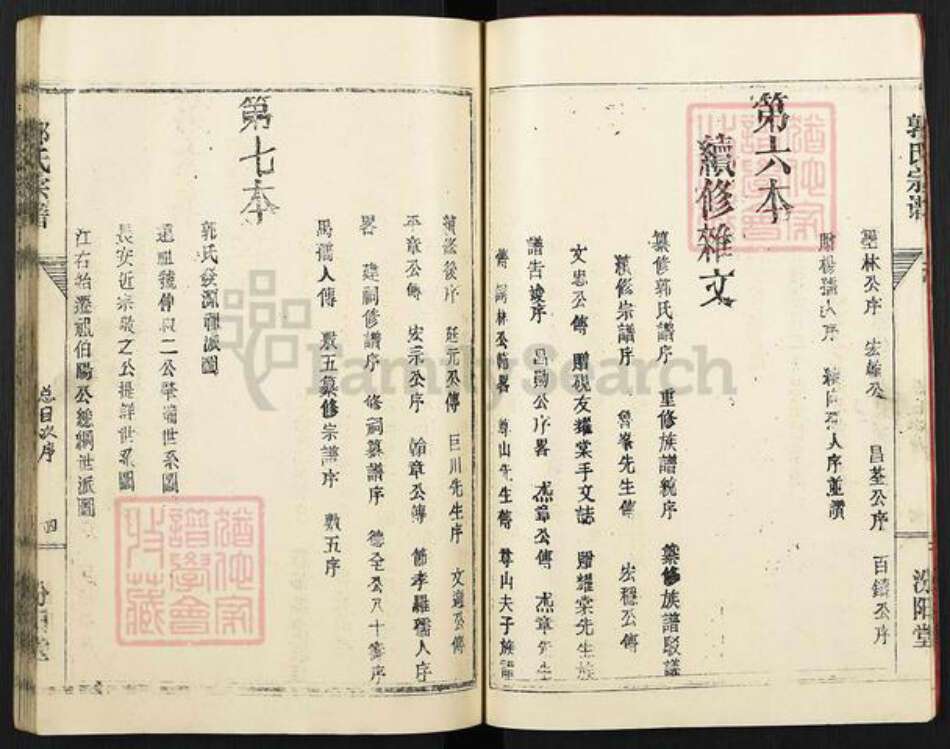 郭氏宗譜
汾阳堂
墨林公序 宏雄公 昌荃公序 百鑄公序
贈楊孺人序
第六本
續修雜文
纂修郭氏譜序 重修族譜貌序 纂修族譜駁議
續修宗譜序 魯峯先生傳 宏穩公傳
文忠公傳 贈稅友耀棠手文誌 贈耀棠先生族
譜告竣序 昌勛公序畧 杰章公傳 杰章先生
傳 墨林公傳畧 尊山先生傳 尊山夫子族譜
續滋後序 延元公傳 巨川先生序 文適公傳
平章公傳 宏宗公序 翰章公傳 節孝羅孺人序
畧 建祠修譜序 修祠纂譜序 德全公八十壽序
馬孺人傳 敷五纂修宗譜序 敷五序
第七本
郭氏發源譜派圖
遠祖虢仲叔二公肇溯世系圖
長安近宗敬之公提詳世系圖
江右始遷祖伯陽公總綱世派圖
郭氏宗譜
总目次序
四
FamilySearch